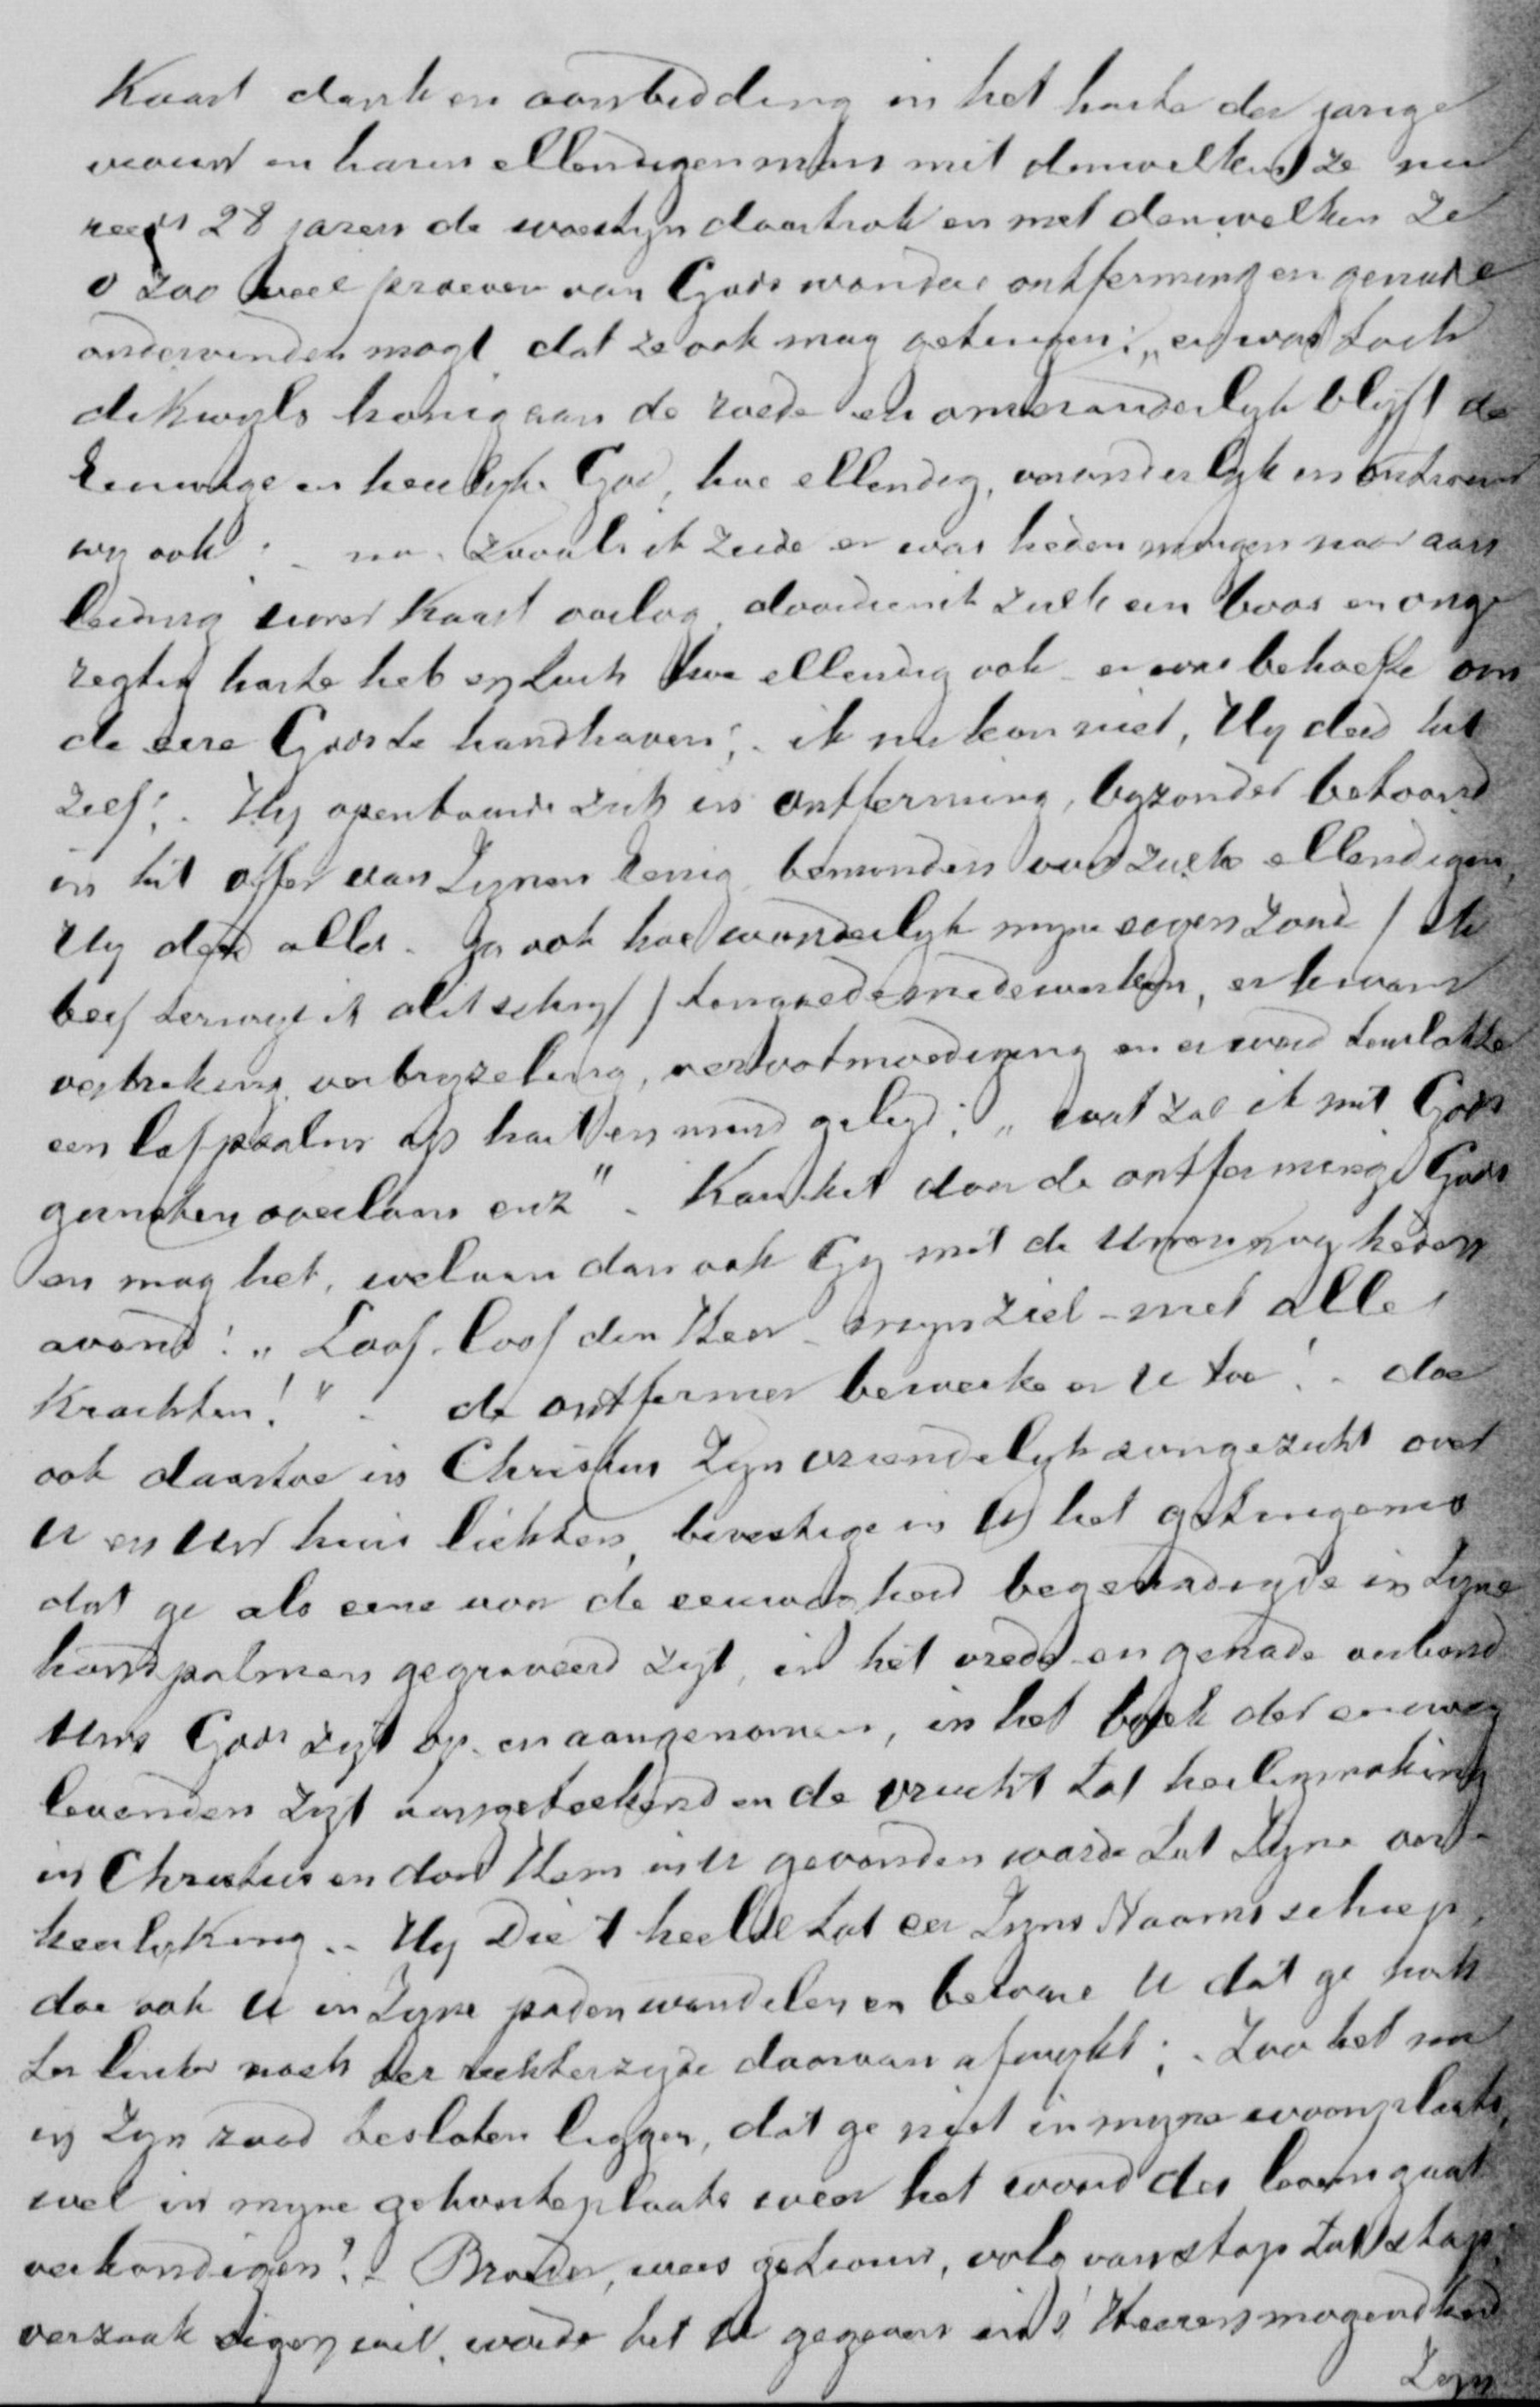 Kaart dank en aanbidding in het harte der jarige
vrouw en haren ellendigen man met denwelken ze nu
reeds 28 jaren de woestyn doortrok en met denwelken ze
o zoo veel proeven van Gods wondere ontferming en genade
ondervinden mogt dat ze ook mag getuigen: „er was toch
dikwyls honig aan de roede en onveranderlyk blyft de
Eeuwige en heerlyke God, hoe ellendig, veranderlyk en ontrouw
wy ook; - nu. Zooals ik zeide er was heden morgen naar aan
leiding uwer kaart oorlog, doordien ik zulk een boos en onge
regtig harte heb en toch hoe ellendig ook - er was behoefte om
de eere Gods te handhaven; - ik nu kon niet, Hy deed het
zelf; - Hy openbaarde zich in ontferming, byzonder betoond
in het offer van Zynen Eenig beminden voor zulke ellendigen,
Hy deed alles. Ja ook hoe wonderlyk myne eigen zond / Ik
beef terwyl ik dit schryf / ten goede medewerken, er kwam
verbreking, verbryzeling, verootmoediging en er werd tenslotte
een lofpsalm op hart en mond gelegd; „wat zal ik met Gods
gunsten overlaan enz" - Kan het door de ontferminge Gods
en mag het, welaan dan ook Gy met de Uwen nog heden
avond: „Loof, loof den Heer - myn ziel - met alle
Krachten!" - de ontfermer bewerke er U toe! - doe
ook daartoe in Christus Zyn vriendelyk aangezicht over
U en Uw huis lichten, bevestige in U het getuigenis
dat ge als eene van de eeuwigheid begenadigde in Zyne
handpalmen gegraveerd zyt, in het vrede en genade verbond
Uws Gods zyt op- en aangenomen, in het boek der eeuwig
levenden zyt aangeteekend en de vrucht tot heiligmaking
in Christus en door Hem in U gevonden worde tot Zyne ver-
heerlyking. - Hy Die 't heelal tot eer Zyns Naams schiep,
doe ook U in Zyne paden wandelen en beware U dat ge noch
ter linker noch ter rechterzyde daarvan afwykt; - Zoo het nu
in Zyn raad besloten liggen, dat ge niet in myne woonplaats,
wel in myne geboorteplaats weer het woord des levens gaat
verkondigen? - Broeder, wees getrouw, volg van stap tot stap;
verzaak eigen wil, worde het U gegeven in 's Heeren mogendheid
Zyn